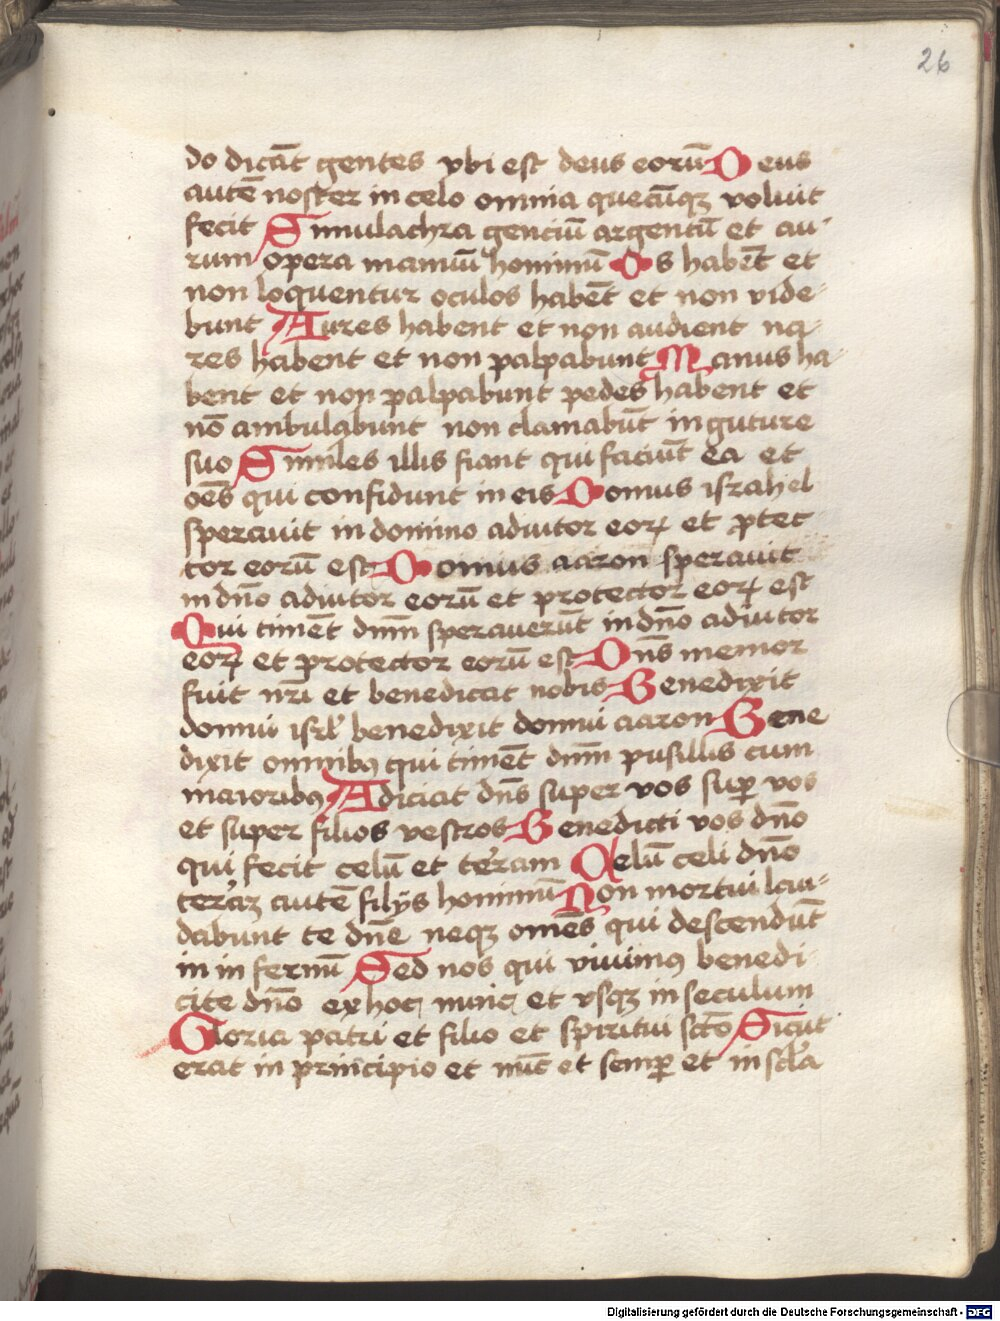 26
do dicāt gentes vbi est deus eorū Deus
autē noster in celo omnia quecūqꝫ voluit
fecit Simulachra genciū argentū et au-
rum opera manuū hominū Os habēt et
non loquentur oculos habēt et non vide-
bunt Aures habent et non audient na-
res habent et non palpabunt Manus ha-
bent et non palpabunt pedes habent et
nō ambulabunt non clamabūt in guture
suo Similes illis fiant qui faciūt ea et
oēs qui confidunt in eis Domus israhel
sperauit in domino adiutor eoꝝ et ꝓtec
tor eorū est Domus aaron sperauit
in dn̄o adiutor eorū et protector eoꝝ est
Qui timēt dn̄m sperauerūt in dn̄o adiutor
eoꝝ et protector eorū est Dn̄s memor
fuit nr̄i et benedicat nobis Benedixit
domui isrl̄ benedixit domui aaron Bene
dixit omnibꝰ qui timēt dn̄m pusillis cum
maioribꝰ Adiciat dn̄s super vos suꝑ vos
et super filios vestros Benedicti vos dn̄o
qui fecit celū et terram Celū celi dn̄o
teraꝫ autē filijs hominū Non mortui lau-
dabunt te dn̄e neqꝫ omēs qui descendūt
in infernū Sed nos qui viuimꝰ benedi-
cite dn̄o ex hoc nunc et vsqꝫ in seculum
Gloria patri et filio et spiritui sct̄o Sicut
erat in principio et nūc et semꝑ et in scl̄a
Digitalisierung gefördert durch die Deutsche Forschungsgemeinschaft - DFG